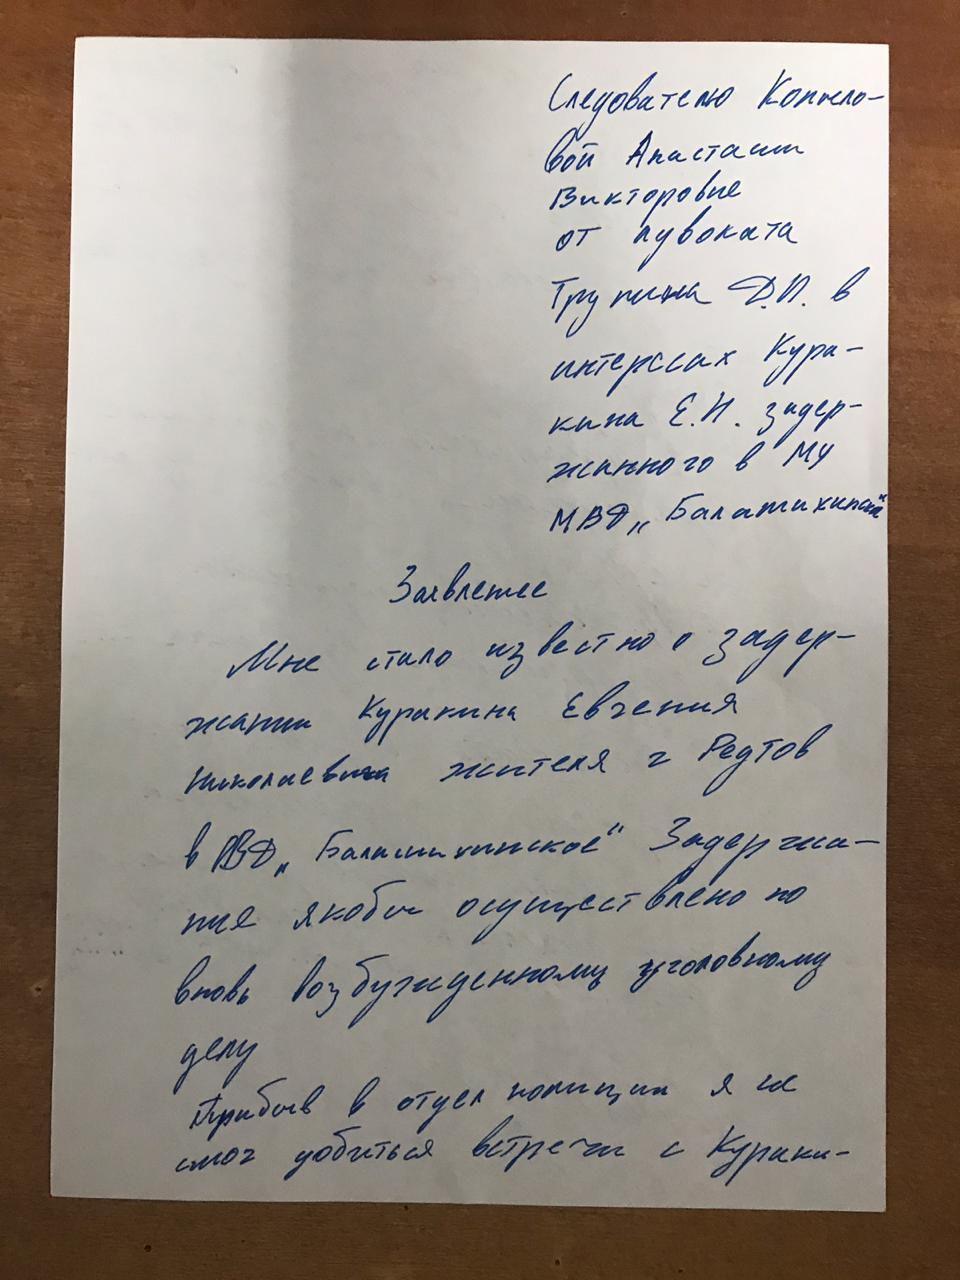 Следователю Копыло-
вой Анастасии
Викторовне
от адвоката
Трупина Д.И. в
интересах Кура-
кина Е.Н. задер-
жанного в МУ
МВД „Балашихинское"
Заявление
Мне стало известно о задер-
жании Куракина Евгения
Николаевича жителя г Реутов
в МВД „Балашихинское" Задержа-
ние якобы осуществлено по
вновь возбужденному уголовному
делу
Прибыв в отдел полиции я не
смог добиться встречи с Кураки-